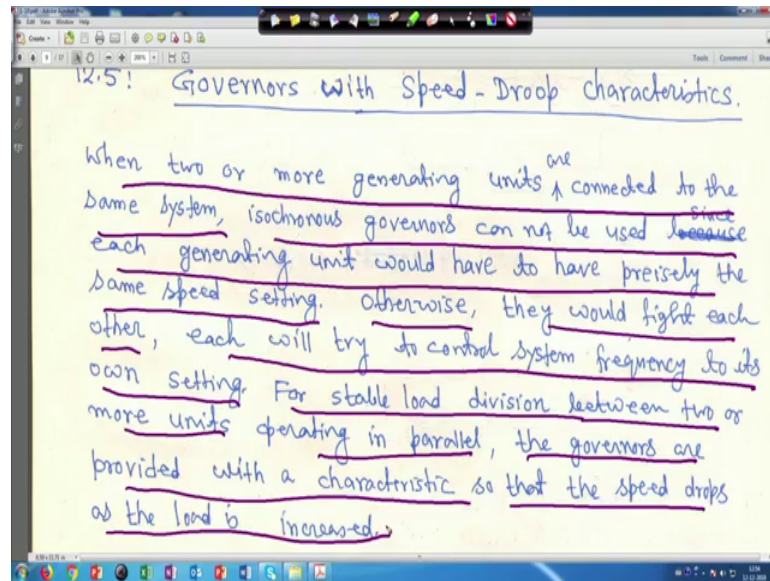 File Edit View Window Help
Create
9 / 17
200%
Tools Comment
12.5: Governors with Speed-Droop Characteristics.
are
When two or more generating units ^ connected to the
same system, isochronous governors can not be used because since
each generating unit would have to have precisely the
same speed setting. Otherwise, they would fight each
other, each will try to control system frequency to its
own setting. For stable load division between two or
more units operating in parallel, the governors are
provided with a characteristic so that the speed drops
as the load is increased.